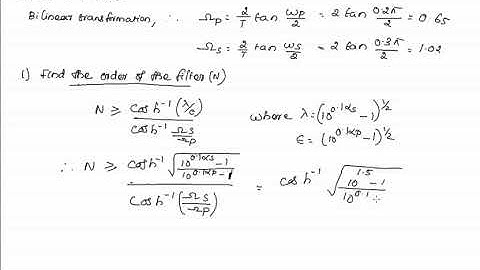 Bilinear transformation, ∴ Ωp = 2/T tan ωp/2 = 2 tan 0.2π/2 = 0.65
Ωs = 2/T tan ωs/2 = 2 tan 0.3π/2 = 1.02
1) Find the order of the filter (N)
N ≥ Cosh⁻¹(λ/ε) / Cosh⁻¹ Ωs/Ωp where λ = (10^0.1αs − 1)^1/2
ε = (10^0.1αp − 1)^1/2
∴ N ≥ Cosh⁻¹ √(10^0.1αs − 1 / 10^0.1αp − 1) / Cosh⁻¹ (Ωs/Ωp) = Cosh⁻¹ √(10^1.5 − 1 / 10^0.1 -